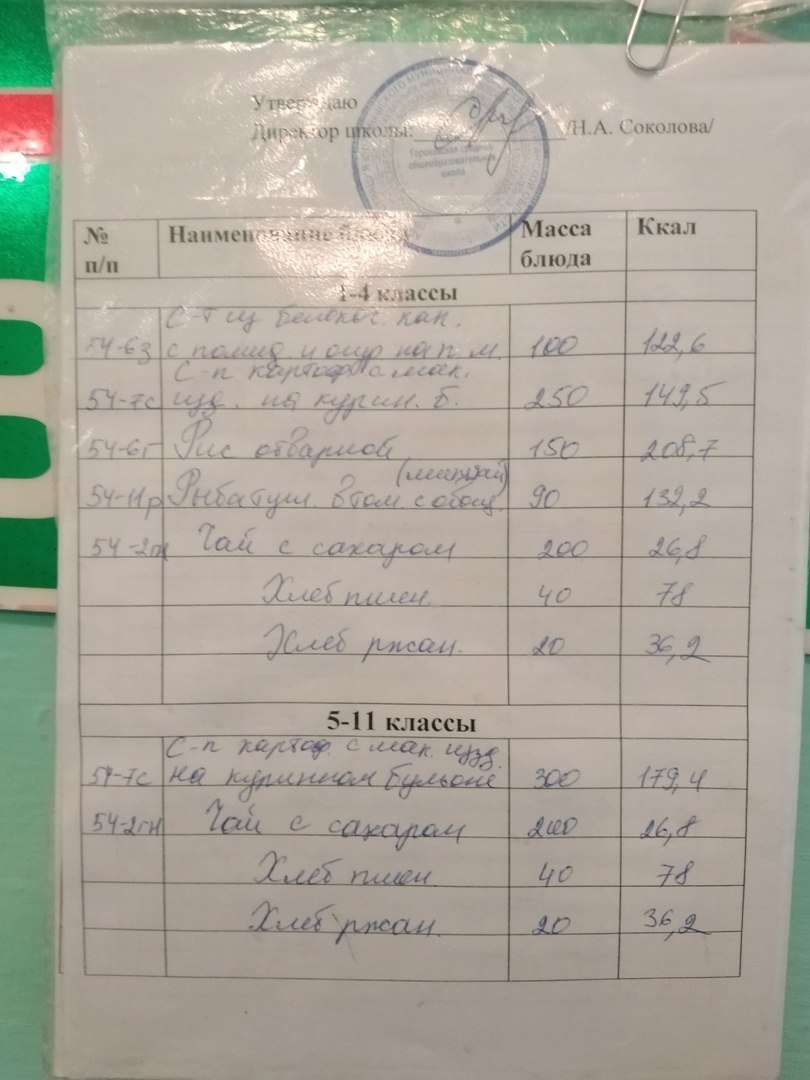 Утверждаю
Директор школы: /Н.А. Соколова/
Гороховская средняя
общеобразовательная
школа
№ п/п Наименование блюда Масса блюда Ккал
1-4 классы
С-т из белокоч. кап.
54-6з с помид. и огур на п. м. 100 122,6
С-п картоф с мак.
54-7с изд. на курин. б. 250 149,5
54-6г Рис отварной 150 208,7
(минтай)
54-11р Рыба туш. в том. с овощ. 90 132,2
54-2гн Чай с сахаром 200 26,8
Хлеб пшен. 40 78
Хлеб ржан. 20 36,2
5-11 классы
С-п картоф. с мак. изд.
54-7с на курином бульоне 300 179,4
54-2гн Чай с сахаром 200 26,8
Хлеб пшен. 40 78
Хлеб ржан. 20 36,2